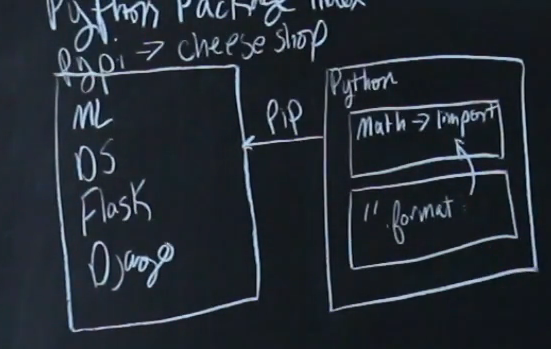 Python Package Index
Pypi → cheese shop
ML
DS
Flask
Django
PiP
Python
Math → import
''.format